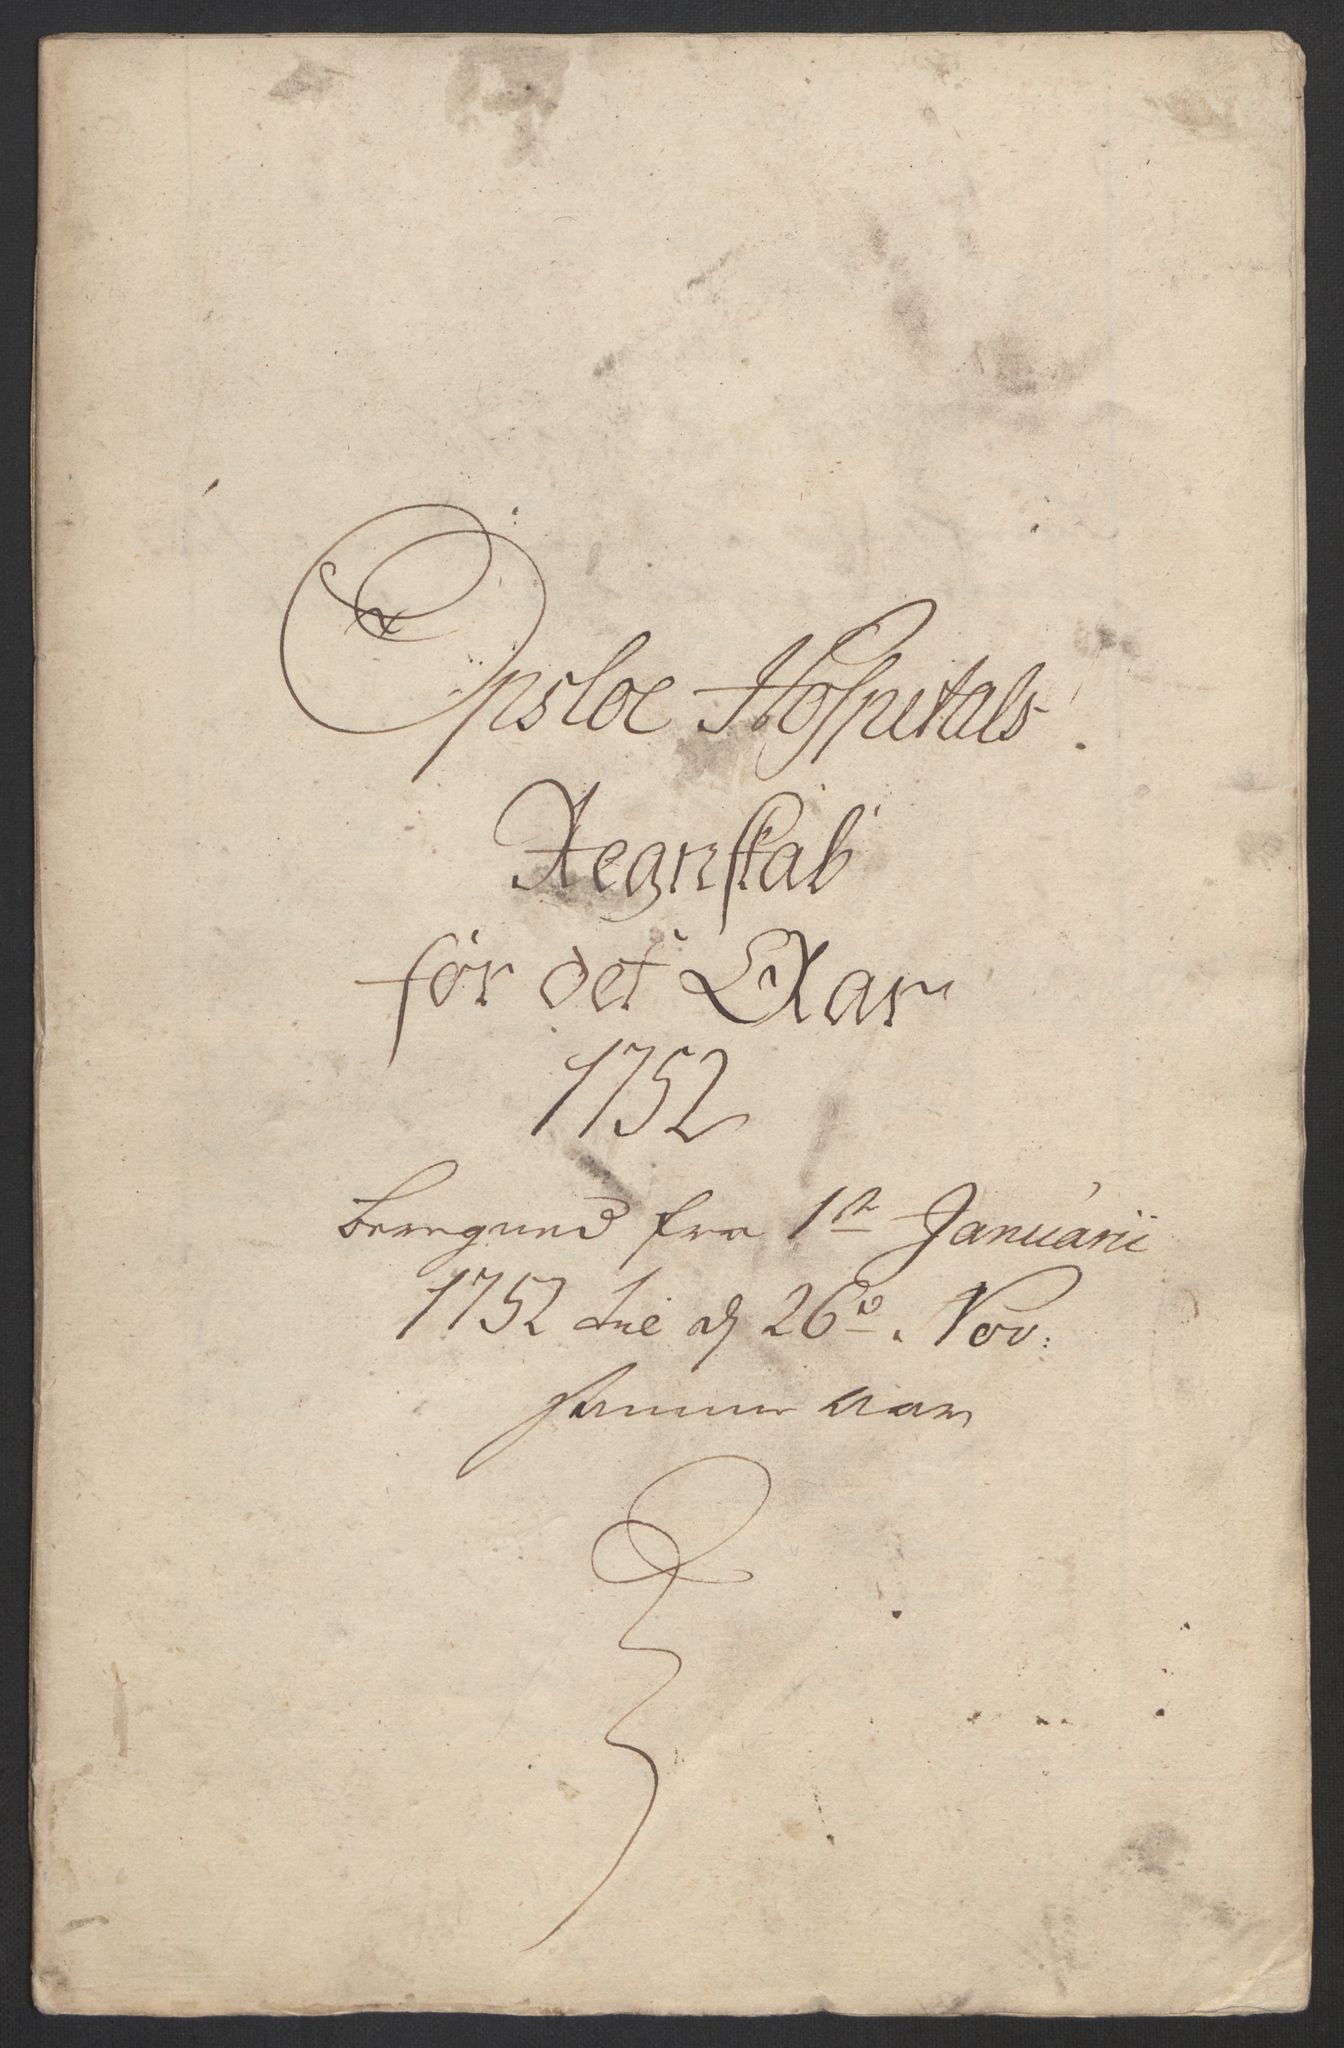 Opsloe Hospitals
Regnskab
før det Aar
1752
beregned fra 1ste Januarii
1752 til d 26de Nov:
samme Aar